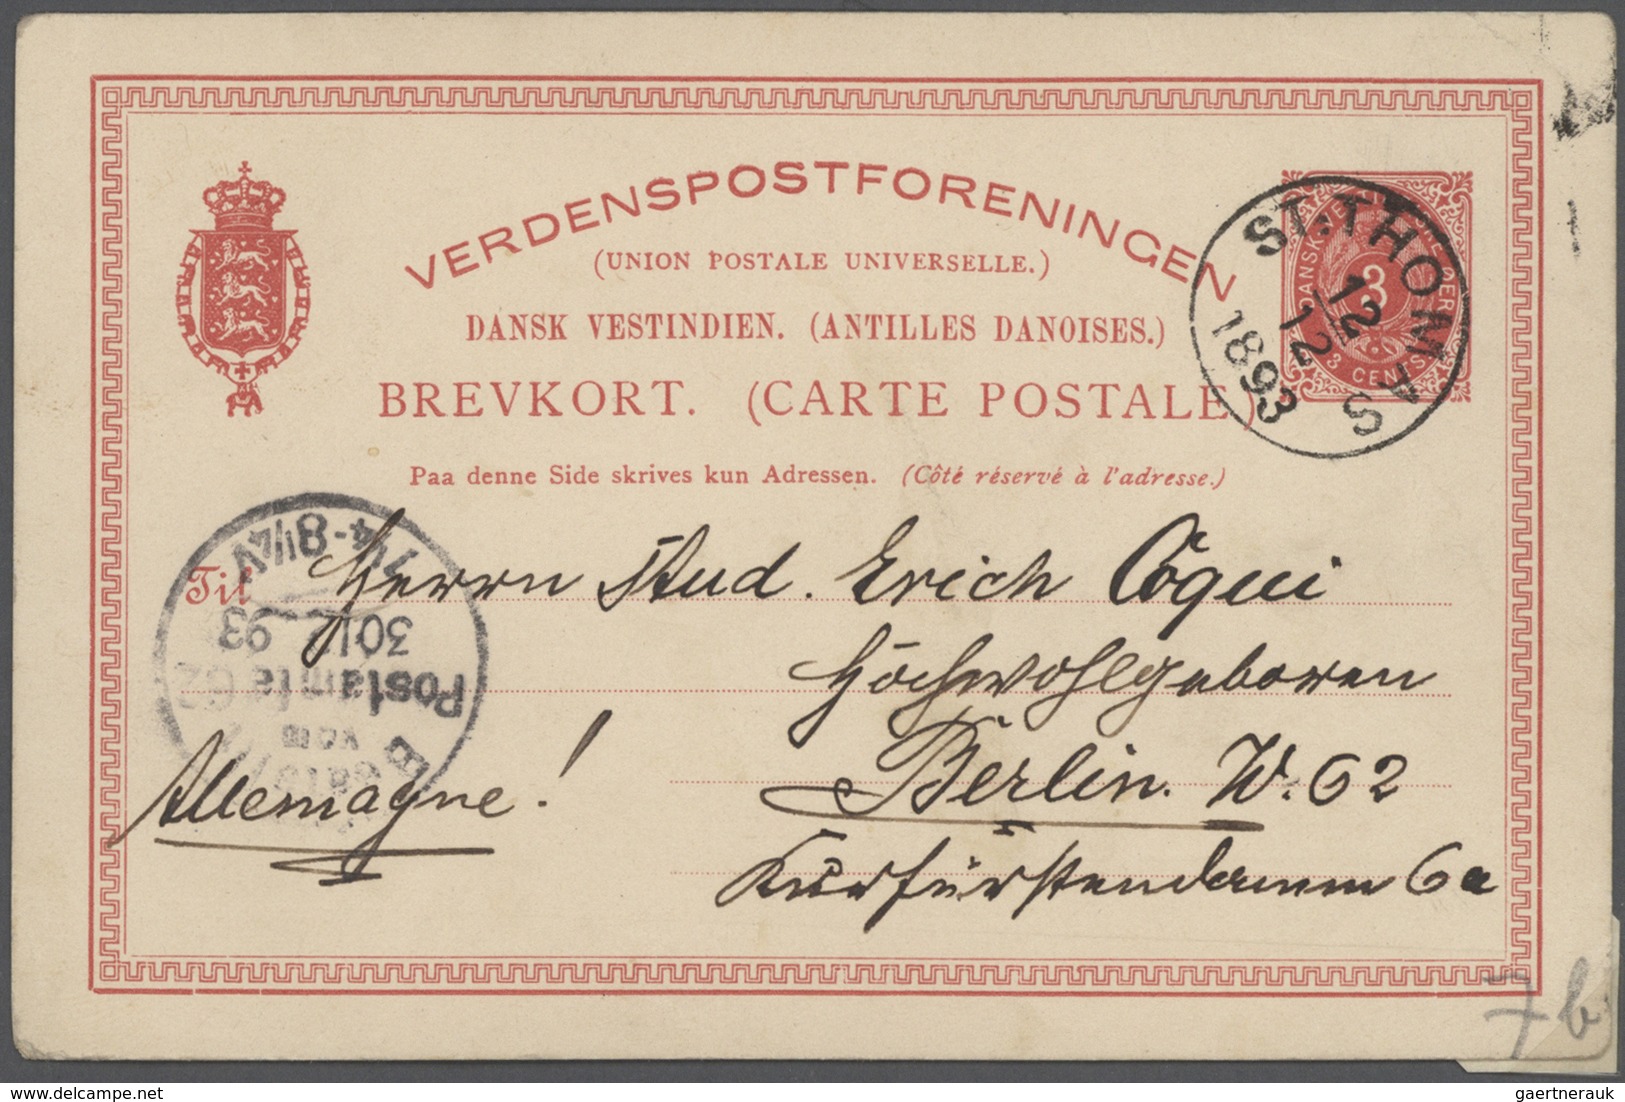 VERDENSPOSTFORENINGEN
(UNION POSTALE UNIVERSELLE.)
DANSK VESTINDIEN. (ANTILLES DANOISES.)
BREVKORT. (CARTE POSTALE)
Paa denne Side skrives kun Adressen. (Côté réservé à l'adresse.)
3
3 CENTS
ST. THOMAS
12
12
1893
Til Herrn Stud. Erich Coqui
Hochwohlgeboren
Berlin. W. 62
Kurfürstendamm 6a
Allemagne!
7¼-8¼V
30 12 93
Postamte 62
vom
7b
gaertnerauk